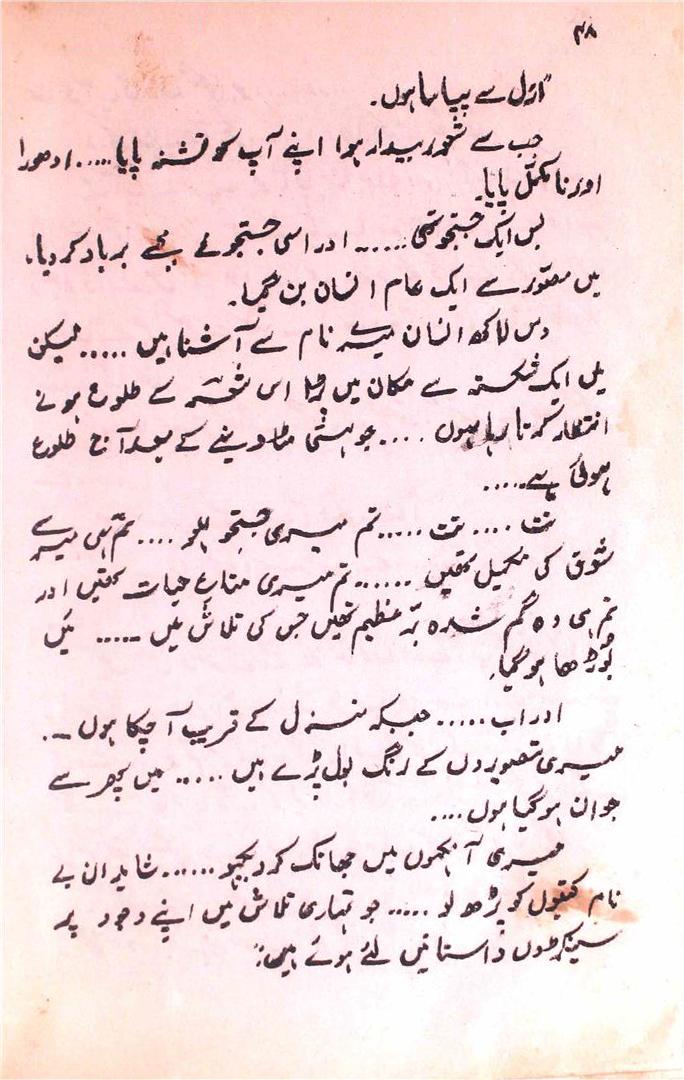 ۴۸
"ازل سے پیاسا ہوں۔
جب سے شعور بیدار ہوا اپنے آپ کو تشنہ پایا..... ادھورا
اور نامکمل پایا۔
بس ایک جستجو تھی...... اور اسی جستجو نے مجھے برباد کر دیا،
میں مصور سے ایک عام انسان بن گیا۔
دس لاکھ انسان میرے نام سے آشنا ہیں ..... لیکن
میں ایک شکستہ سے مکان میں پڑا اس سَحر کے طلوع ہونے
انتظار کرتا رہا ہوں .... جو ہستی مٹا دینے کے بعد آج طلوع
ہوئی ہے.....
تت .... تت ..... تم میری جستجو ہو .... تم ہی میرے
شوق کی تکمیل تھیں ...... تم میری متاعِ حیات تھیں اور
تم ہی وہ گم شدہ عظیم تھیں جس کی تلاش میں ...... میں
بوڑھا ہو گیا۔
اور اب ..... جبکہ منزل کے قریب آ چکا ہوں ...
میری تصویروں کے رنگ بول پڑے ہیں ..... میں پھر سے
جوان ہو گیا ہوں ....
میری آنکھوں میں جھانک کر دیکھو ...... شاید ان بے
نام کتبوں کو پڑھ لو ..... جو تمہاری تلاش میں اپنے وجود پر
سینکڑوں داستانیں لئے ہوئے ہیں"